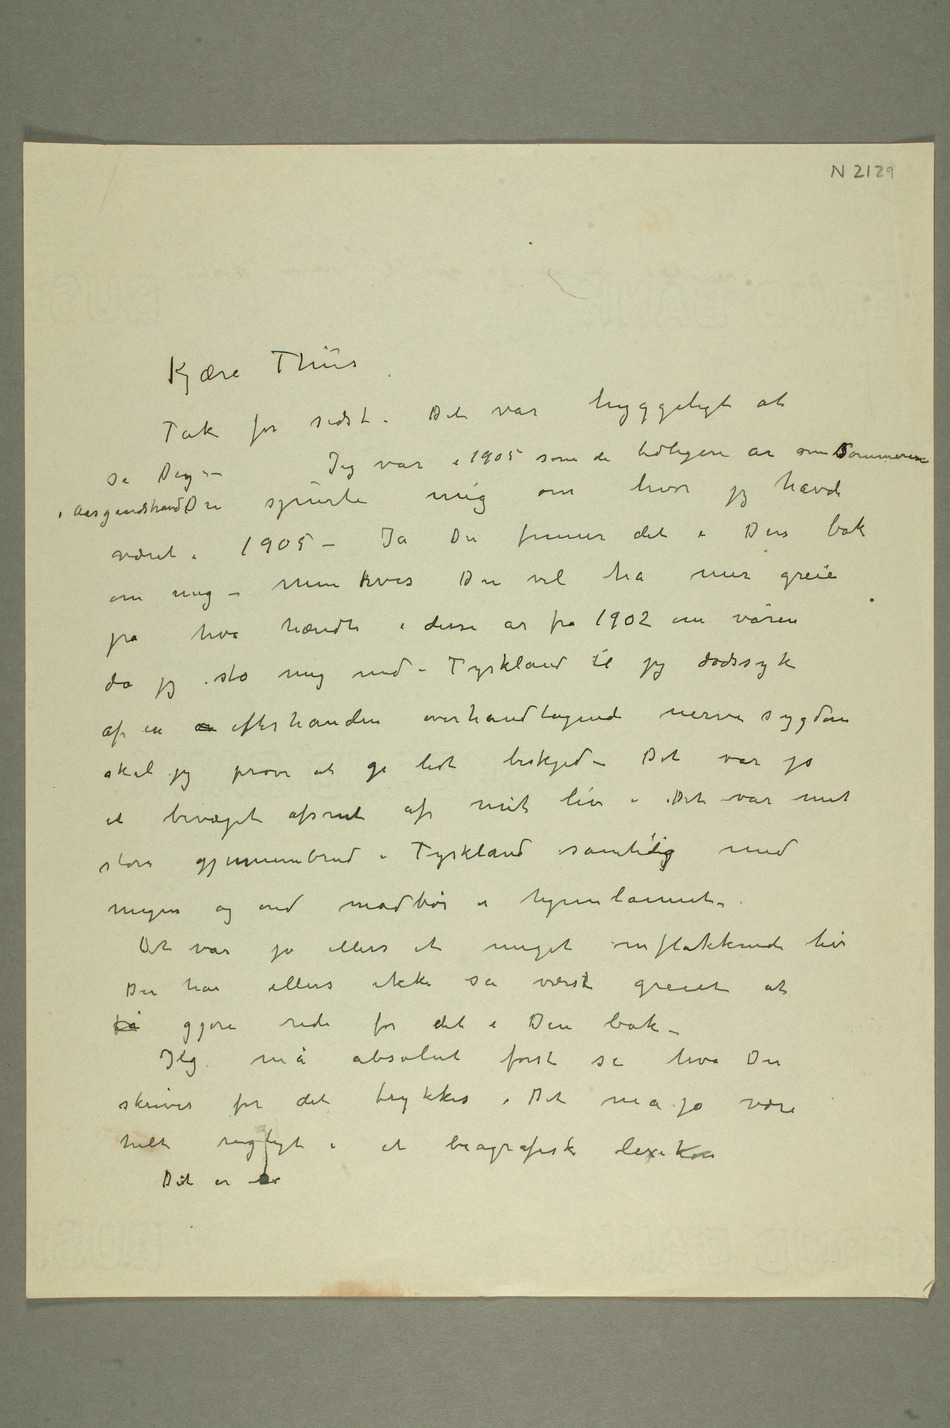 N 2129
Kjære Thiis
Tak for sidst. Det var hyggeligt at
se Dig –
Jeg var i 1905 som de tidligere år om Sommeren
i Aasgaardstrand
Du spurte mig om hvor jeg havde
været i 1905 – Ja Du finner det i Din bok
om mig – Men hvis Du vil ha mer greie
på hva hændte i disse år fra 1902 om våren
da jeg slo mig ned i Tyskland til jeg dødssyk
af en efterhånden overhandtagende nervesygdom
skal jeg prøve at gi lidt beskjed – Det var jo
et bevæget afsnit af mit liv – Det var mit
store gjennembrud i Tyskland samtidig med
megen og ond modbør i hjemlannet.
Det var jo ellers et meget omflakkende liv
Du har ellers ikke så værst greiet at
få gjøre rede for det i Din bok –
Jeg må absolut først se hva Du
skriver før det trykkes. Det må jo være
helt nøgtigt i et biografisk lexikon
Det er